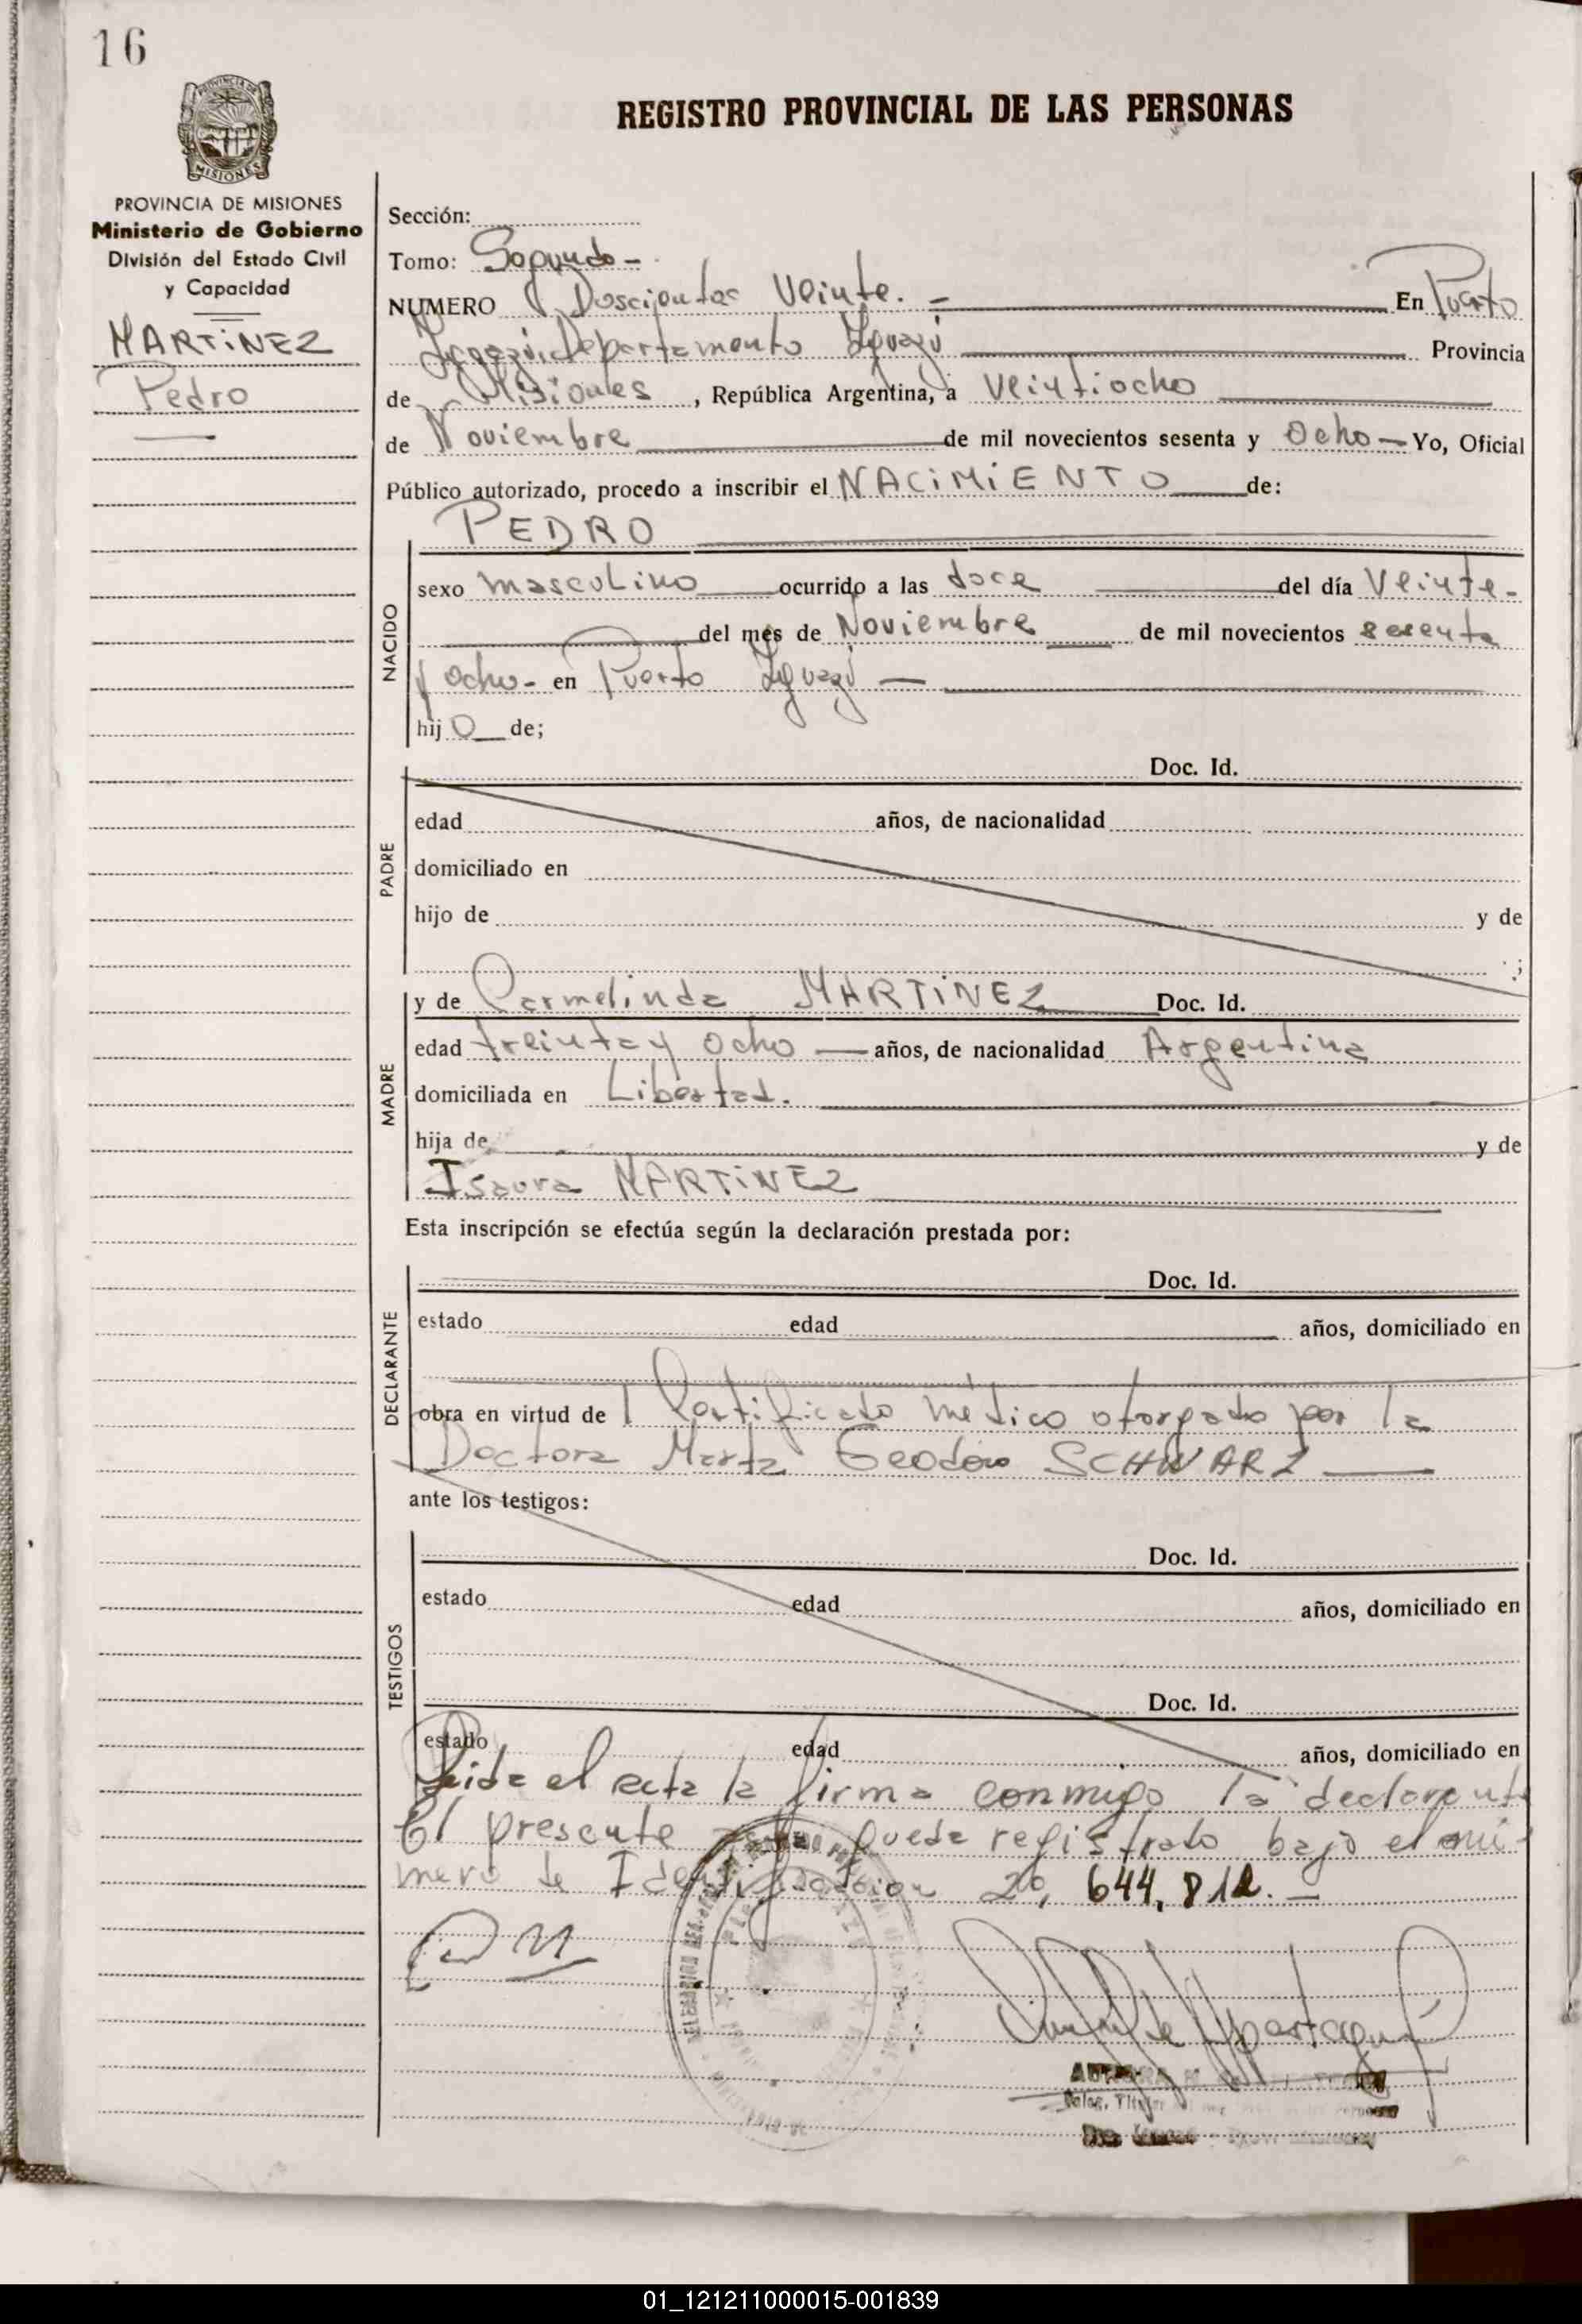 16
PROVINCIA DE
MISIONES
REGISTRO PROVINCIAL DE LAS PERSONAS
PROVINCIA DE MISIONES
Ministerio de Gobierno
División del Estado Civil
y Capacidad
MARTiNEZ
Pedro
Sección:
Tomo: Segundo -
NUMERO Doscientos Veinte. - En Puerto
Iguazú, Departamento Iguazú Provincia
de Misiones, República Argentina, a Veintiocho
de Noviembre de mil novecientos sesenta y Ocho - Yo, Oficial
Público autorizado, procedo a inscribir el NACiMiENTO de:
PEDRO
NACIDO
sexo masculino ocurrido a las doce del día Veinte -
del mes de Noviembre de mil novecientos sesenta
y ocho - en Puerto Iguazú -
hij o de;
PADRE
Doc. Id.
edad años, de nacionalidad
domiciliado en
hijo de y de
;
MADRE
y de Carmelinda MARTiNEZ Doc. Id.
edad treinta y ocho - años, de nacionalidad Argentina
domiciliada en Libertad.
hija de y de
Isaura MARTiNEZ
Esta inscripción se efectúa según la declaración prestada por:
DECLARANTE
Doc. Id.
estado edad años, domiciliado en
obra en virtud de Certificado médico otorgado por la
Doctora Marta SCHWARZ
ante los testigos:
TESTIGOS
Doc. Id.
estado edad años, domiciliado en
Doc. Id.
estado edad años, domiciliado en
Leida el acta la firma conmigo la declarante
El presente queda registrado bajo el nú-
mero de Identificacion 20, 644, 812. -
01_121211000015-001839